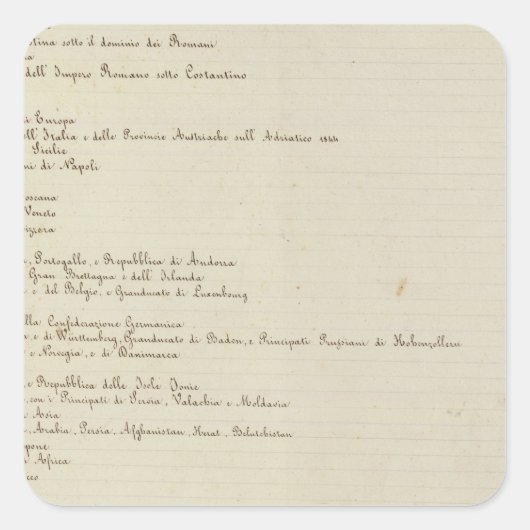 stina sotto il dominio dei Romani
na
dell' Impero Romano sotto Costantino
di Europa
ell' Italia e delle Provincie Austriache sull' Adriatico 1844
Sicilie
ni di Napoli
oscana
Veneto
izzera
, Portogallo, e Repubblica di Andorra
Gran Brettagna e dell' Irlanda
a e del Belgio, e Granducato di Luxembourg
lla Confederazione Germanica
a, e di Württemberg, Granducato di Baden, e Principati Prussiani di Hohenzollern
e Norvegia, e di Danimarca
, e Repubblica delle Isole Jonie
, con i Principati di Servia, Valachia e Moldavia
Asia
, Arabia, Persia, Afghanistan, Herat, Belutchistan
pone
Africa
cco